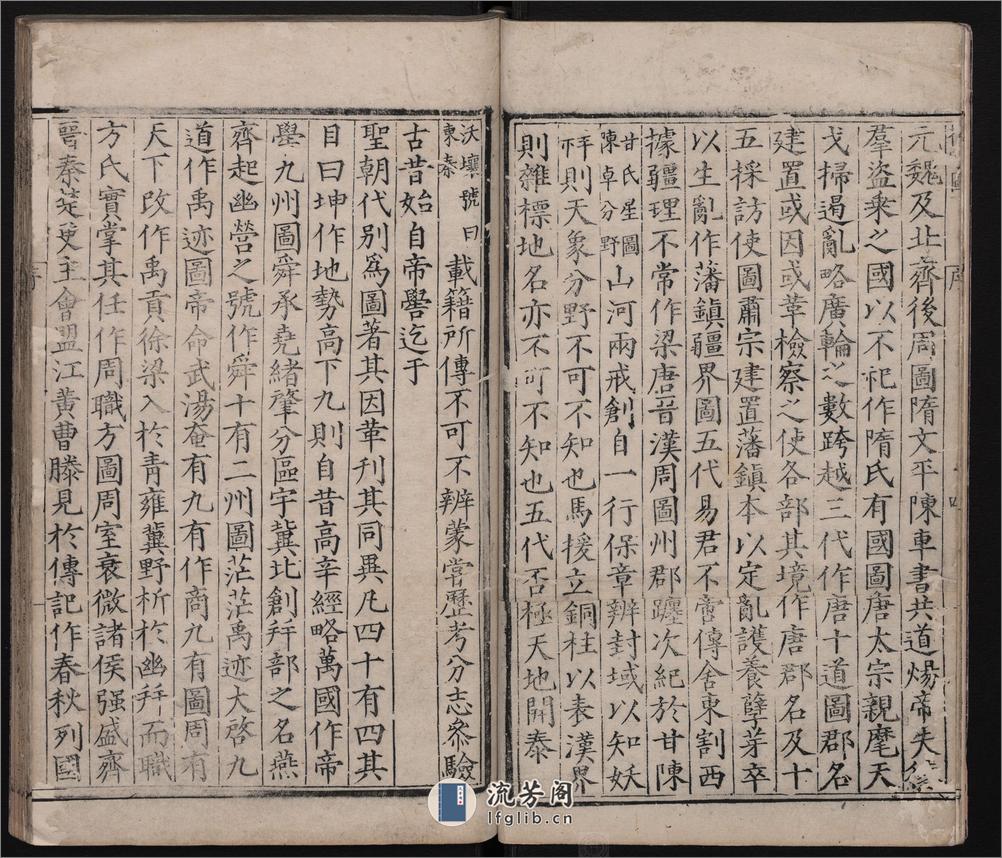 元魏及北齊後周圖隋文平陳車書共道煬帝失
羣盜乗之國以不祀作隋氏有國圖唐太宗親麾天
戈掃遏亂略廣輪之數跨越三代作唐十道圖郡名
建置或因或革檢察之使各部其境作唐郡名及十
五採訪使圖肅宗建置藩鎮本以定亂護養孽芽卒
以生亂作藩鎮疆界圖五代易君不啻傳舍東割西
據疆理不常作梁唐晉漢周圖州郡躔次紀於甘陳
甘氏星圖陳卓分野山河兩戒創自一行保章辨封域以知妖
祥則天象分野不可不知也馬援立銅柱以表漢界
則雜標地名亦不可不知也五代否極天地開泰
沃壤號曰東秦載籍所傳不可不辨蒙嘗歷考分志參驗
古昔始自帝嚳迄于
聖朝代別爲圖著其因革刊其同異凡四十有四其
目曰坤作地勢高下九則自昔高辛經略萬國作帝
嚳九州圖舜承堯緒肇分區宇冀北創并部之名燕
齊起幽營之號作舜十有二州圖茫茫禹迹大啓九
道作禹迹圖帝命武湯奄有九有作商九有圖周有
天下改作禹貢徐梁入於青雍冀野析於幽并而職
方氏實掌其任作周職方圖周室衰微諸侯强盛齊
晉秦楚更主會盟江黄曹滕見於傳記作春秋列國
流芳阁
lfglib.cn